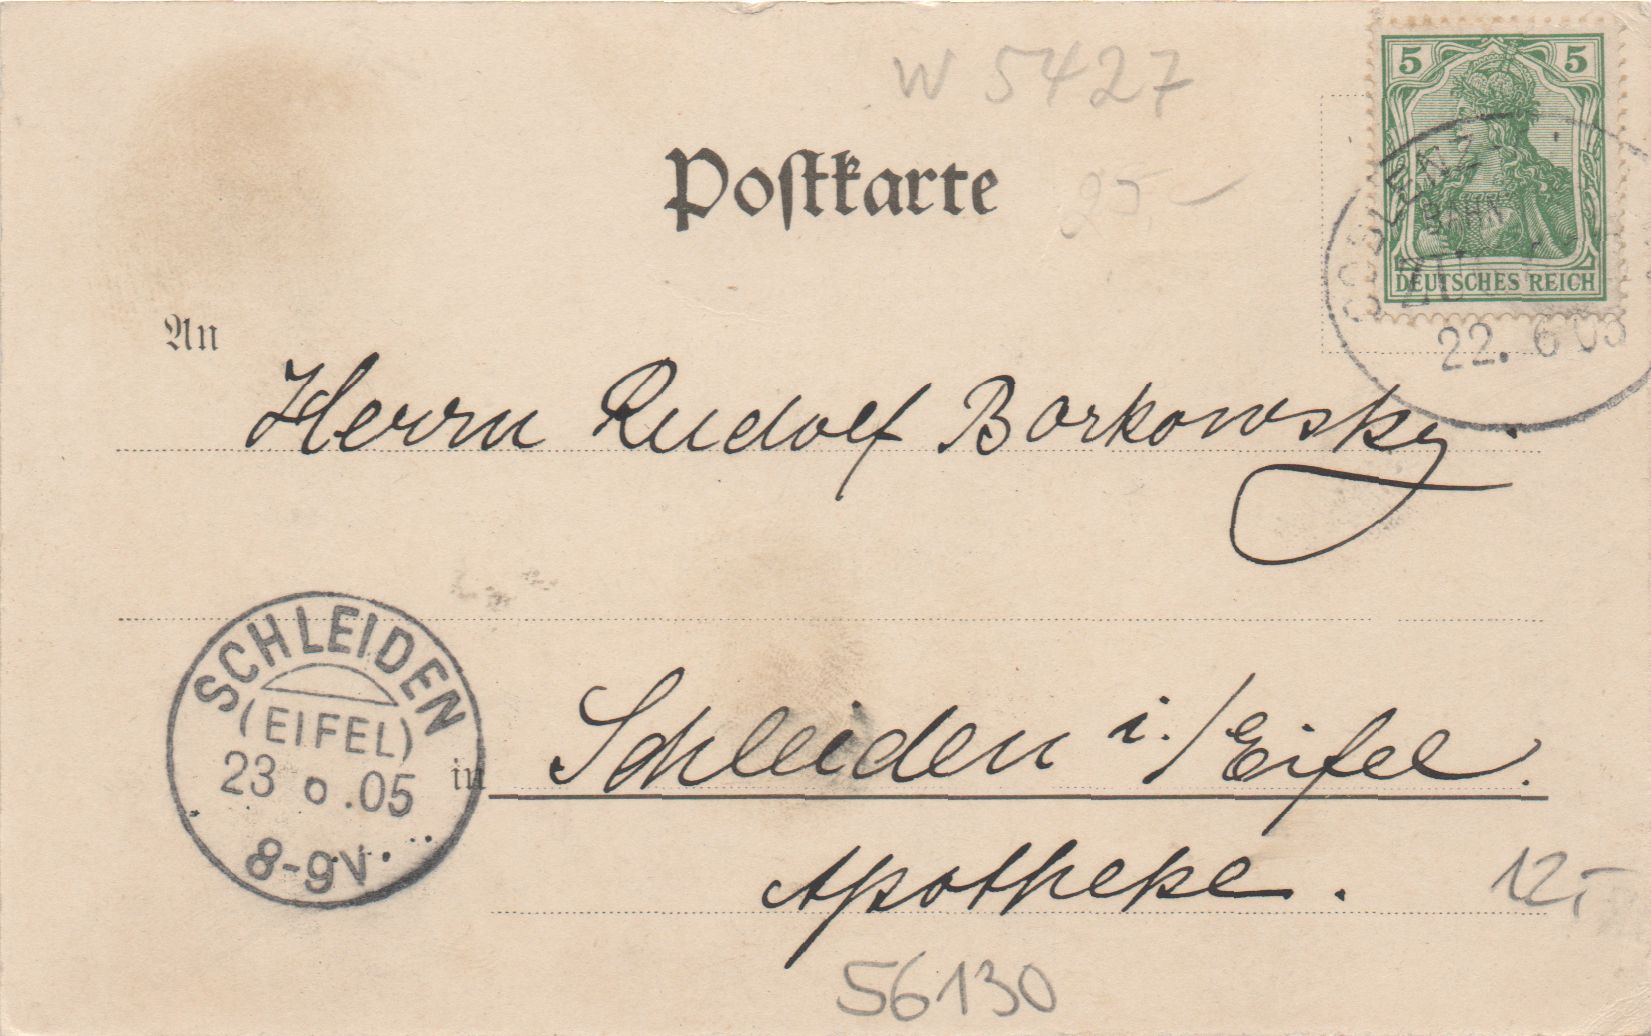 W 5427
5 5
DEUTSCHES REICH
Postkarte
25,-
COBLENZ
BAHN
ZUG
22. 6 05
An
Herrn Rudolf Borkowsky.
SCHLEIDEN
(EIFEL)
23 .05
8-9V.
in Schleiden i./Eifel.
Apotheke.
12,-
56130